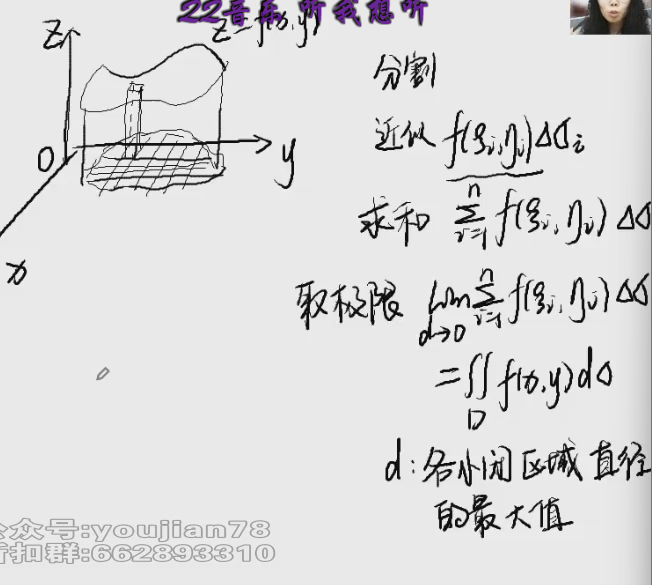 22音乐 听我想听
z=f(x,y)
z
O
y
x
分割
近似 f(ξi,ηi)Δσi
求和 ∑_{i=1}^{n} f(ξi,ηi)Δσ
取极限 lim_{d→0} ∑_{i=1}^{n} f(ξi,ηi)Δσ
=∬_D f(x,y)dσ
d:各小闭区域直径
的最大值
公众号:youjian78
折扣群:662893310